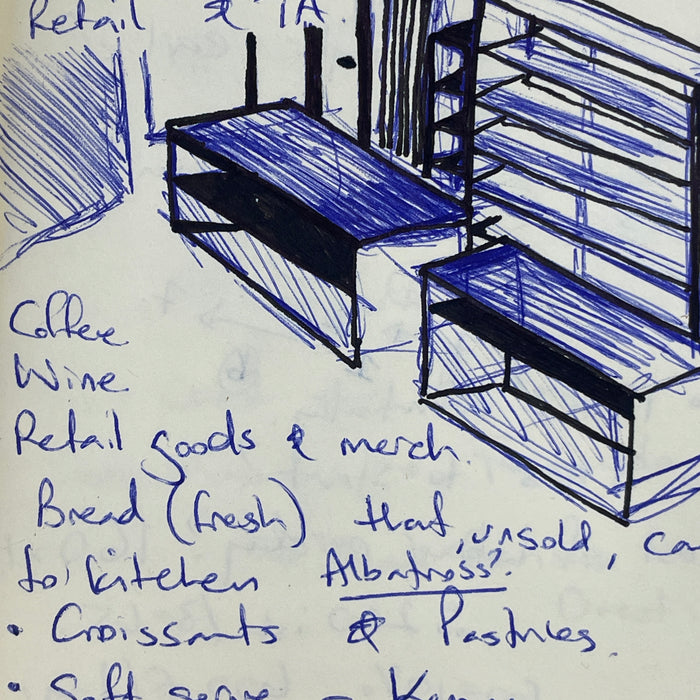 Retail & TA.
Coffee
Wine
Retail goods & merch.
Bread (fresh) that, unsold, ca
to kitchen Albatross?
• Croissants & Pastries.
• Soft serve -